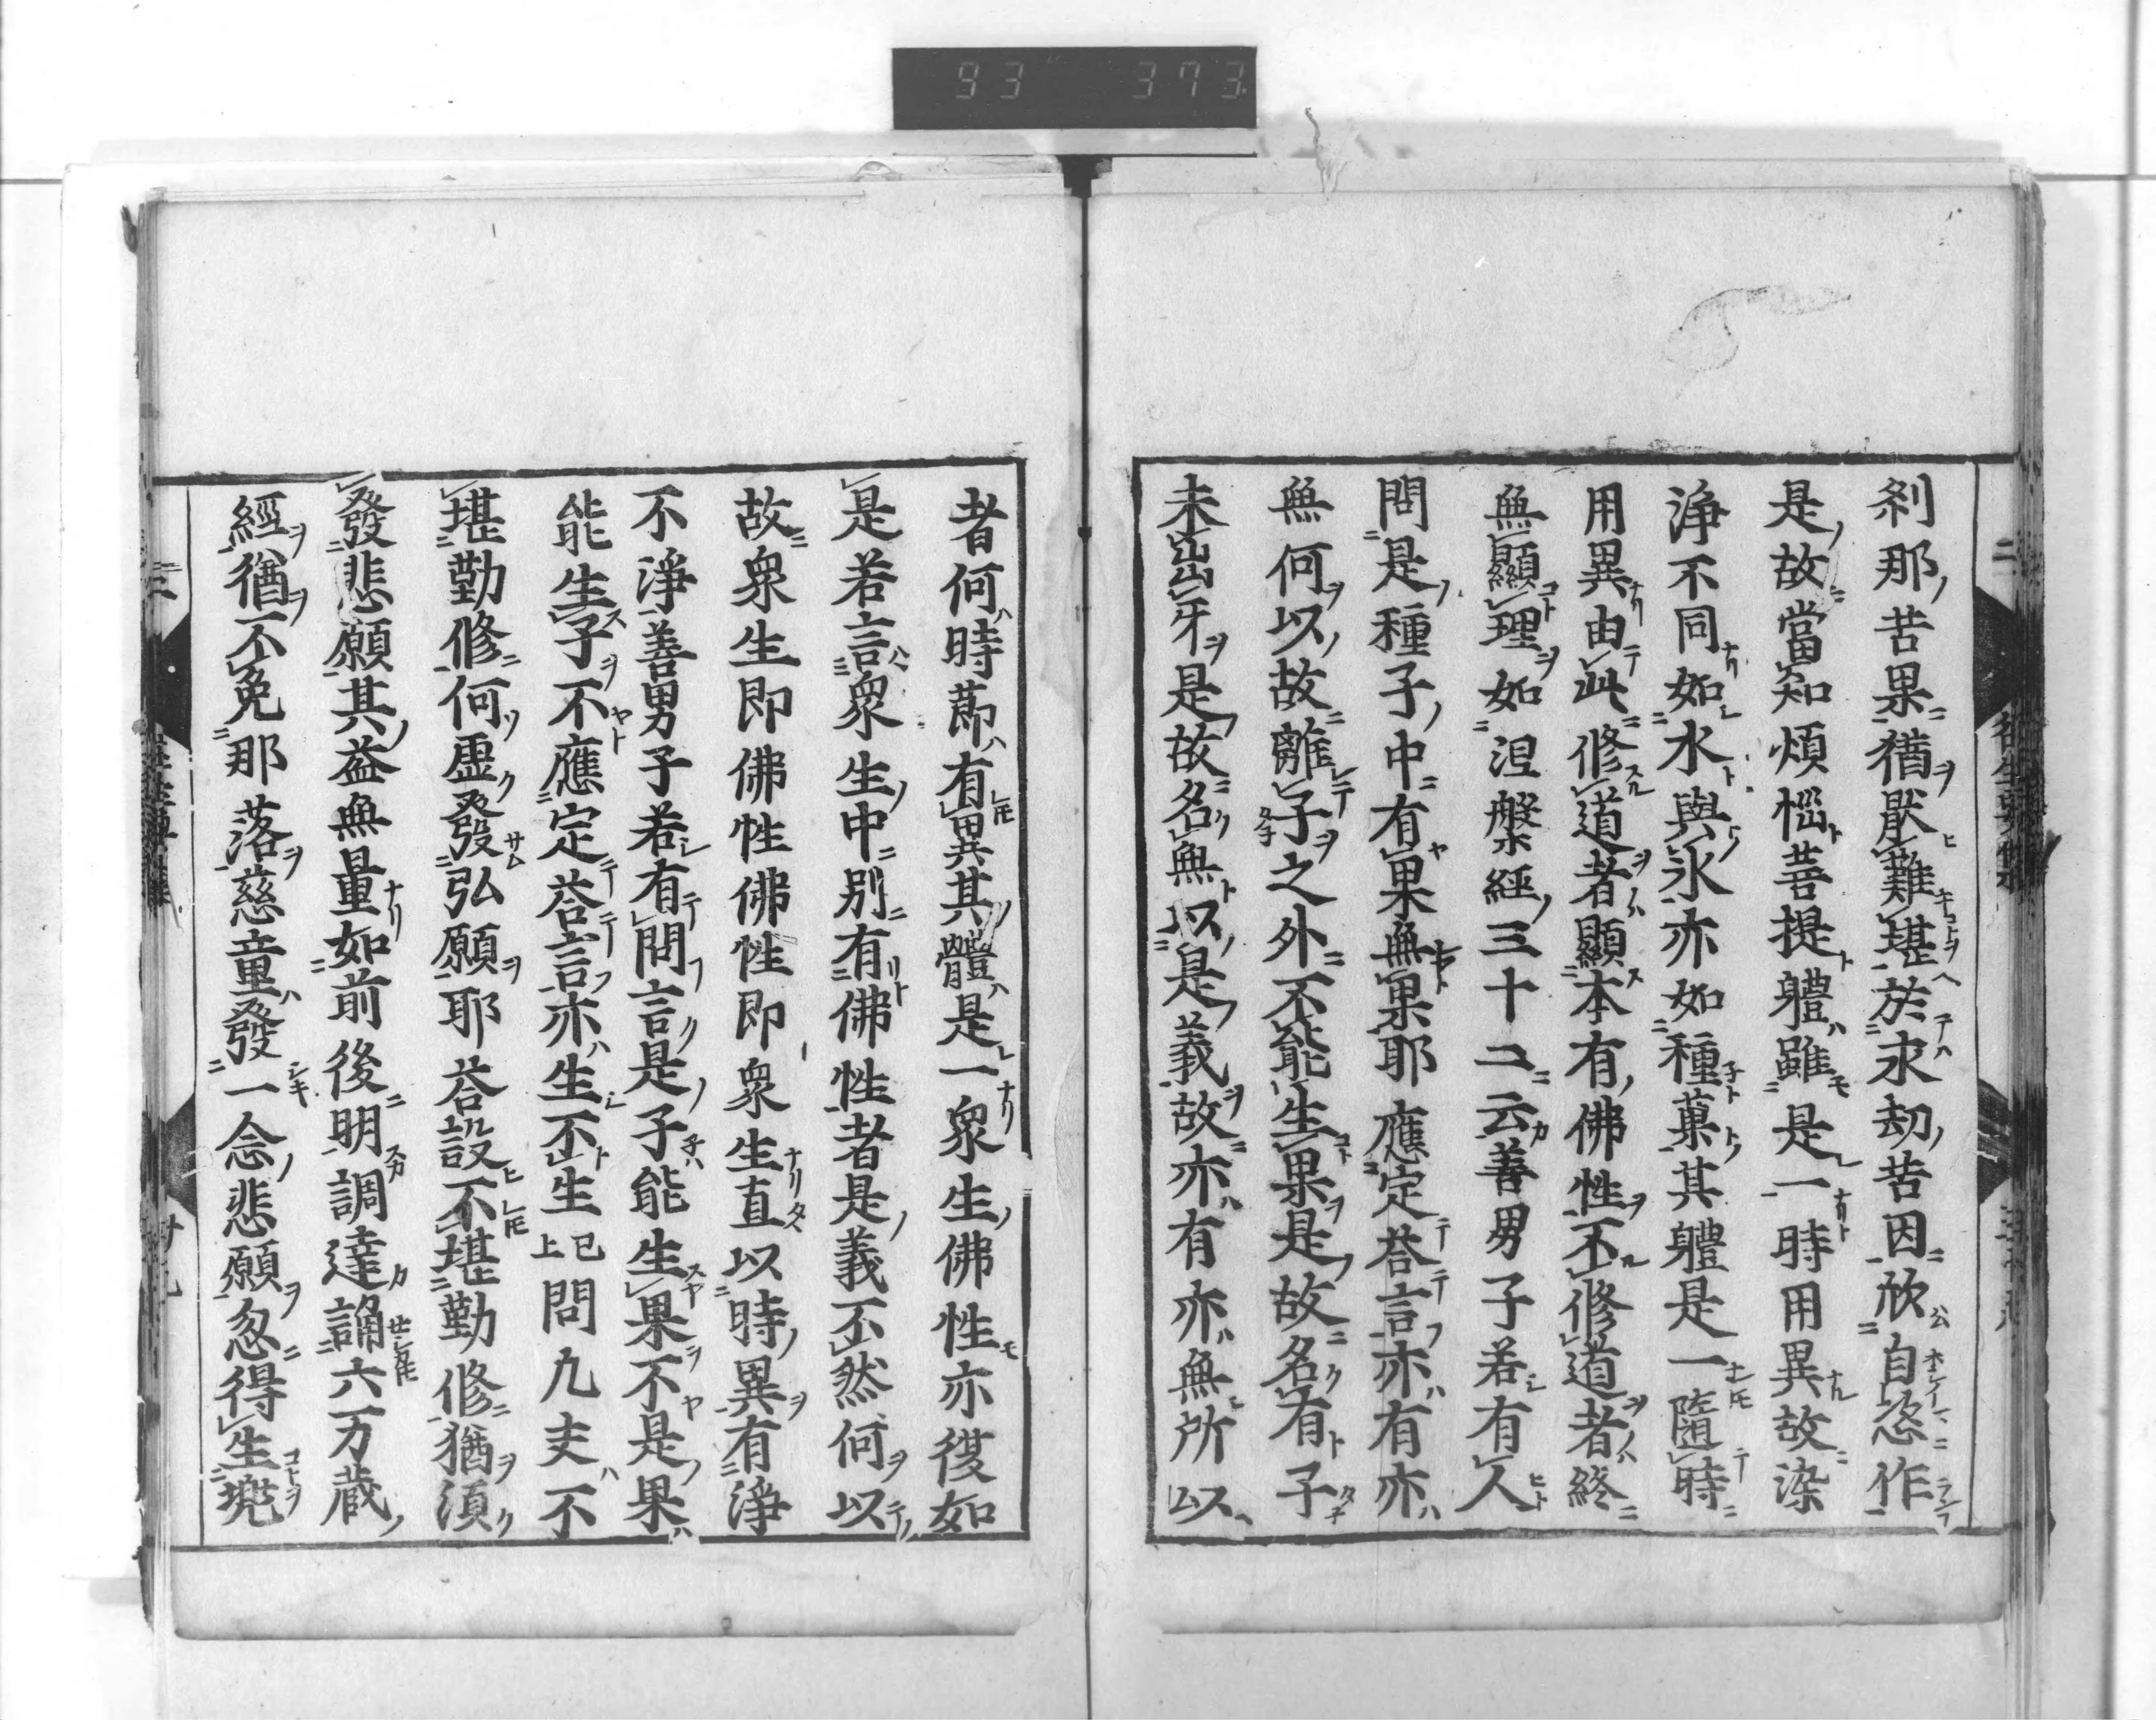 93 373
刹那苦果猶厭難堪於永劫苦因欣自恣作
是故當知煩惱菩提體雖是一時用異故染
淨不同如水與氷亦如種菓其體是一隨時
用異由此修道者顯本有佛性不修道者終
無顯理如涅槃經三十二云善男子若有人
問是種子中有果無果耶應定荅言亦有亦
無何以故離子之外不能生果是故名有子
未出牙是故名無以是義故亦有亦無所以
者何時莭有異其體是一衆生佛性亦復如
是若言衆生中別有佛性者是義不然何以
故衆生即佛性佛性即衆生直以時異有淨
不淨善男子若有問言是子能生果不是果
能生子不應定荅言亦生不生已上問凡夫不
堪勤修何虛發弘願耶荅設不堪勤修猶須
發悲願其益無量如前後明調達誦六万藏
經猶不免那落慈童發一念悲願忽得生兜